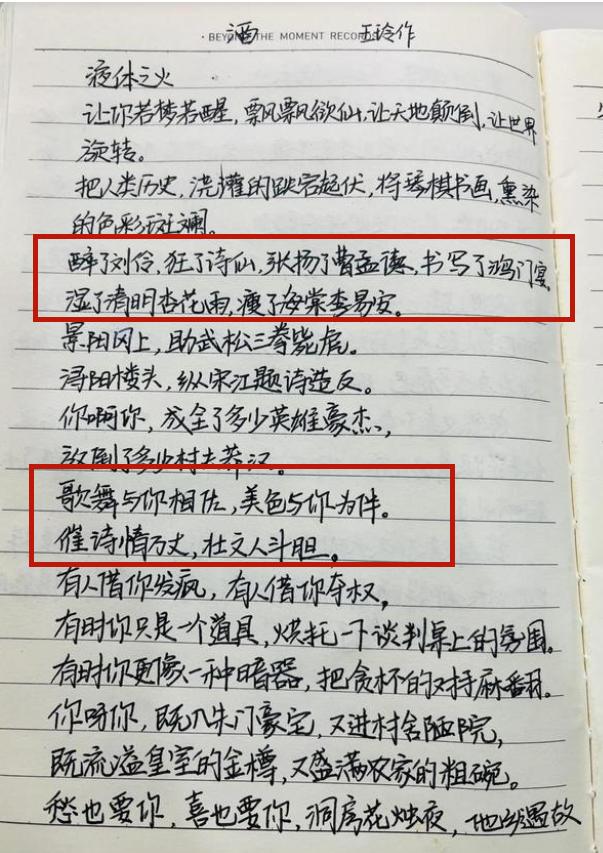 · BEYOND THE MOMENT RECORD
酒 王玲作
液体之火
让你若梦若醒,飘飘欲仙,让天地颠倒,让世界
旋转。
把人类历史,浇灌的跌宕起伏,将琴棋书画,熏染
的色彩斑斓。
醉了刘伶,狂了诗仙,张扬了曹孟德,书写了鸿门宴
湿了清明杏花雨,瘦了海棠李易安。
景阳冈上,助武松三拳毙虎。
浔阳楼头,纵宋江题诗造反。
你啊你,成全了多少英雄豪杰,
放倒了多少村夫莽汉。
歌舞与你相佐,美色与你为伴。
催诗情万丈,壮文人斗胆。
有人借你发疯,有人借你夺权,
有时你只是一个道具,烘托一下谈判桌上的氛围。
有时你更像一种暗器,把贪杯的对手麻翻。
你呀你,既入朱门豪宅,又进村舍陋院,
既流溢皇室的金樽,又盛满农家的粗碗。
愁也要你,喜也要你,洞房花烛夜,他乡遇故